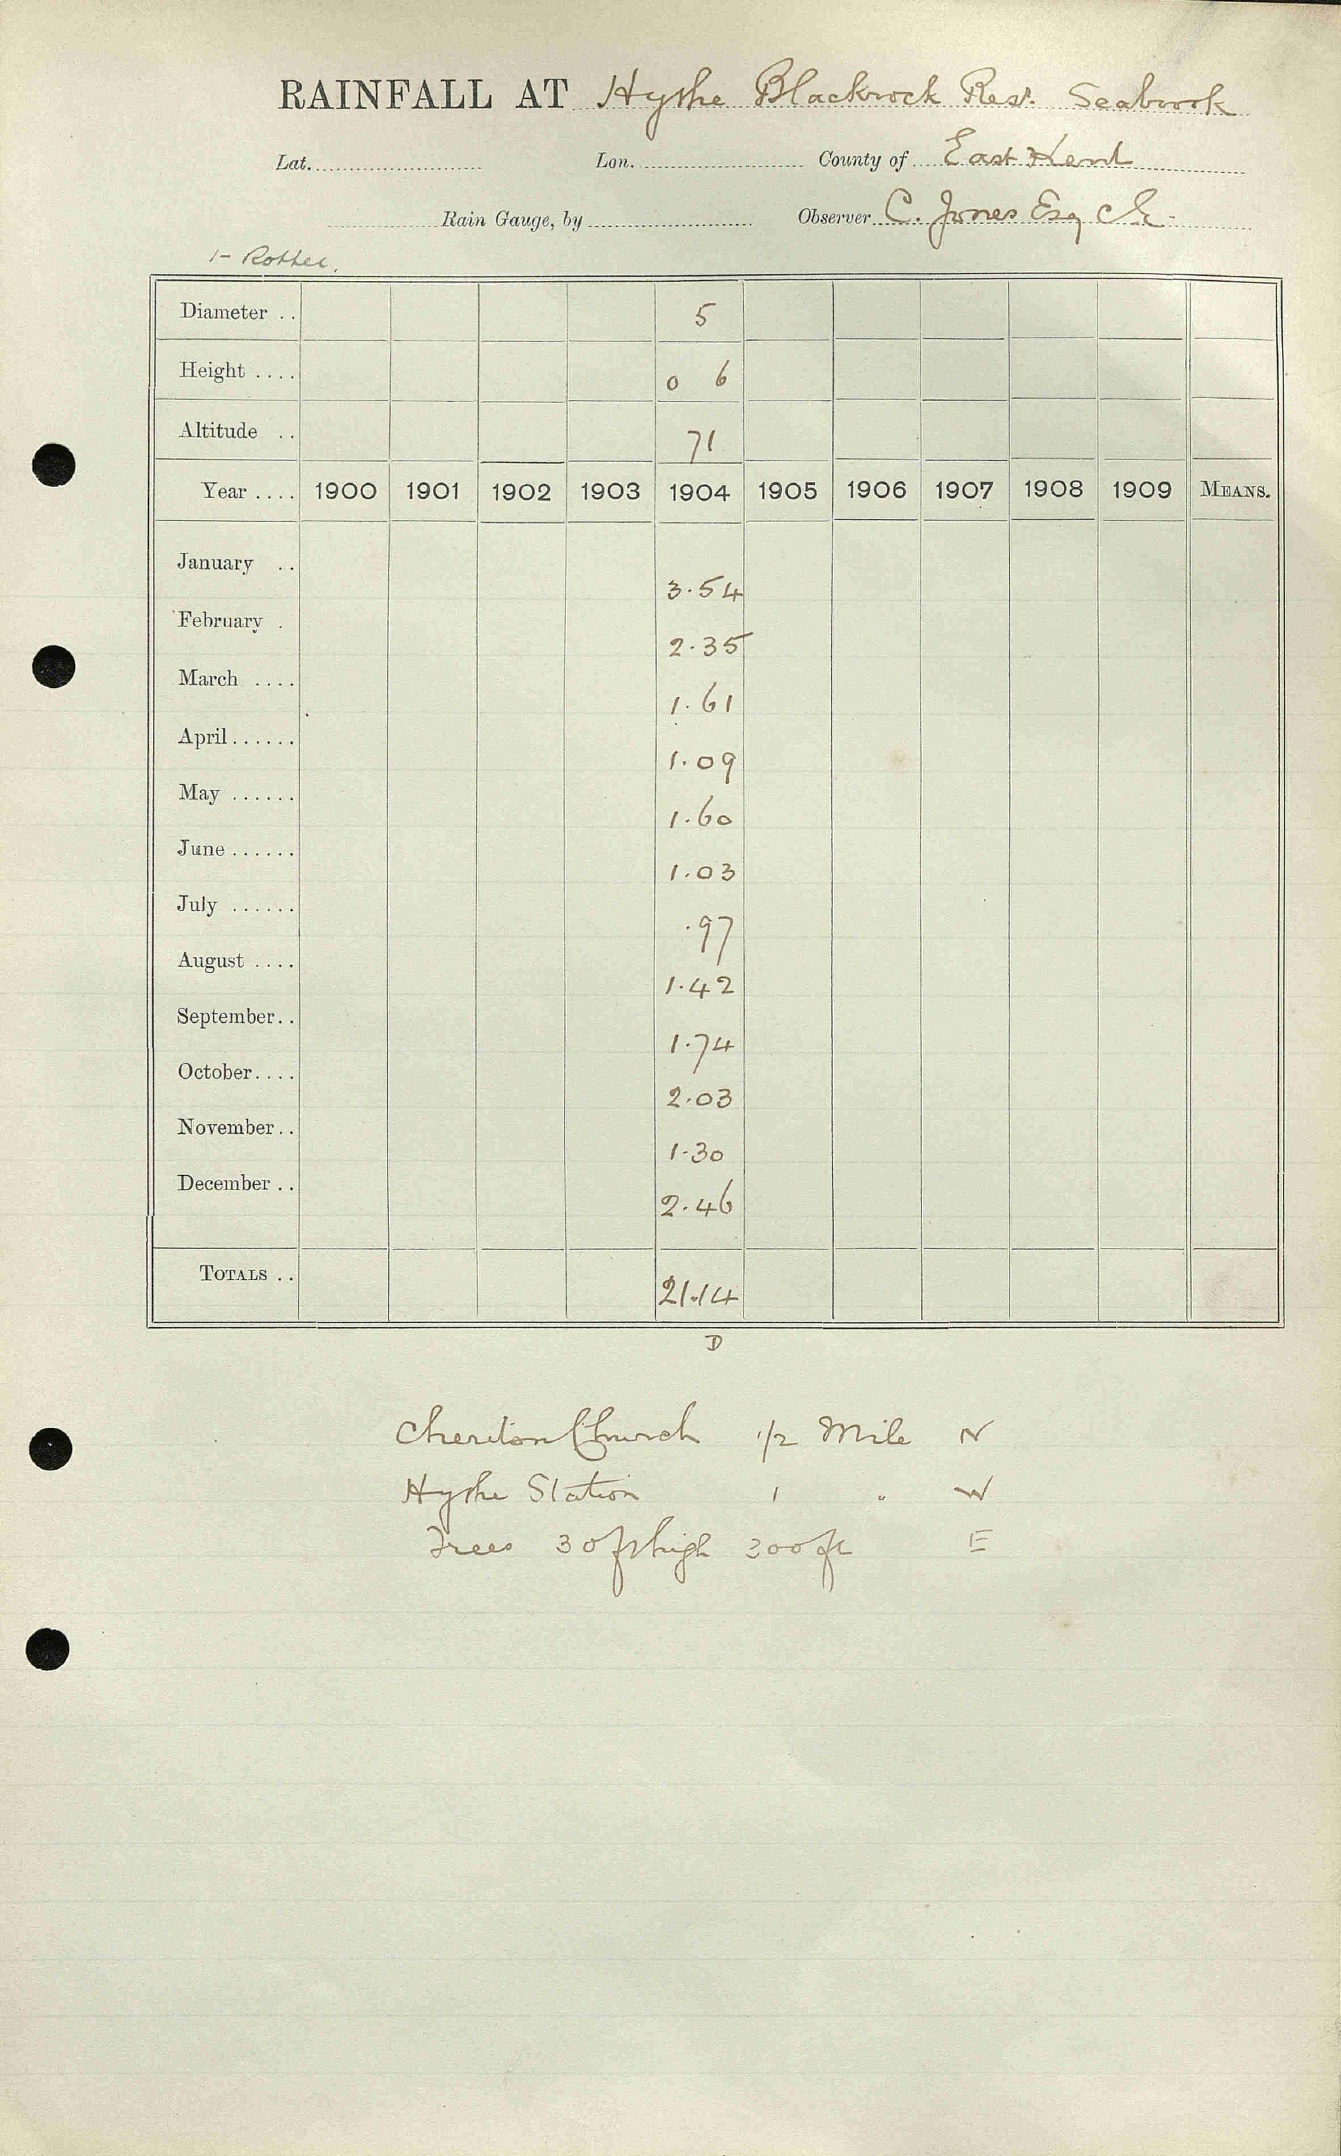 RAINFALL AT Hythe Blackrock Res. Seabrook
Lat. Lon. County of East Kent
Rain Gauge, by Observer C. Jones Esq C.E.
1- Rother.
Diameter .. 5
Height .... 0 6
Altitude .. 71
Year .... 1900 1901 1902 1903 1904 1905 1906 1907 1908 1909 MEANS.
January .. 3.54
February . 2.35
March .... 1.61
April...... 1.09
May ...... 1.60
June...... 1.03
July ...... .97
August .... 1.42
September.. 1.74
October.... 2.03
November.. 1.30
December .. 2.46
TOTALS .. 21.14
D
Cheriton Church 1/2 Mile N
Hythe Station 1 " W
Trees 30ft high 300ft E